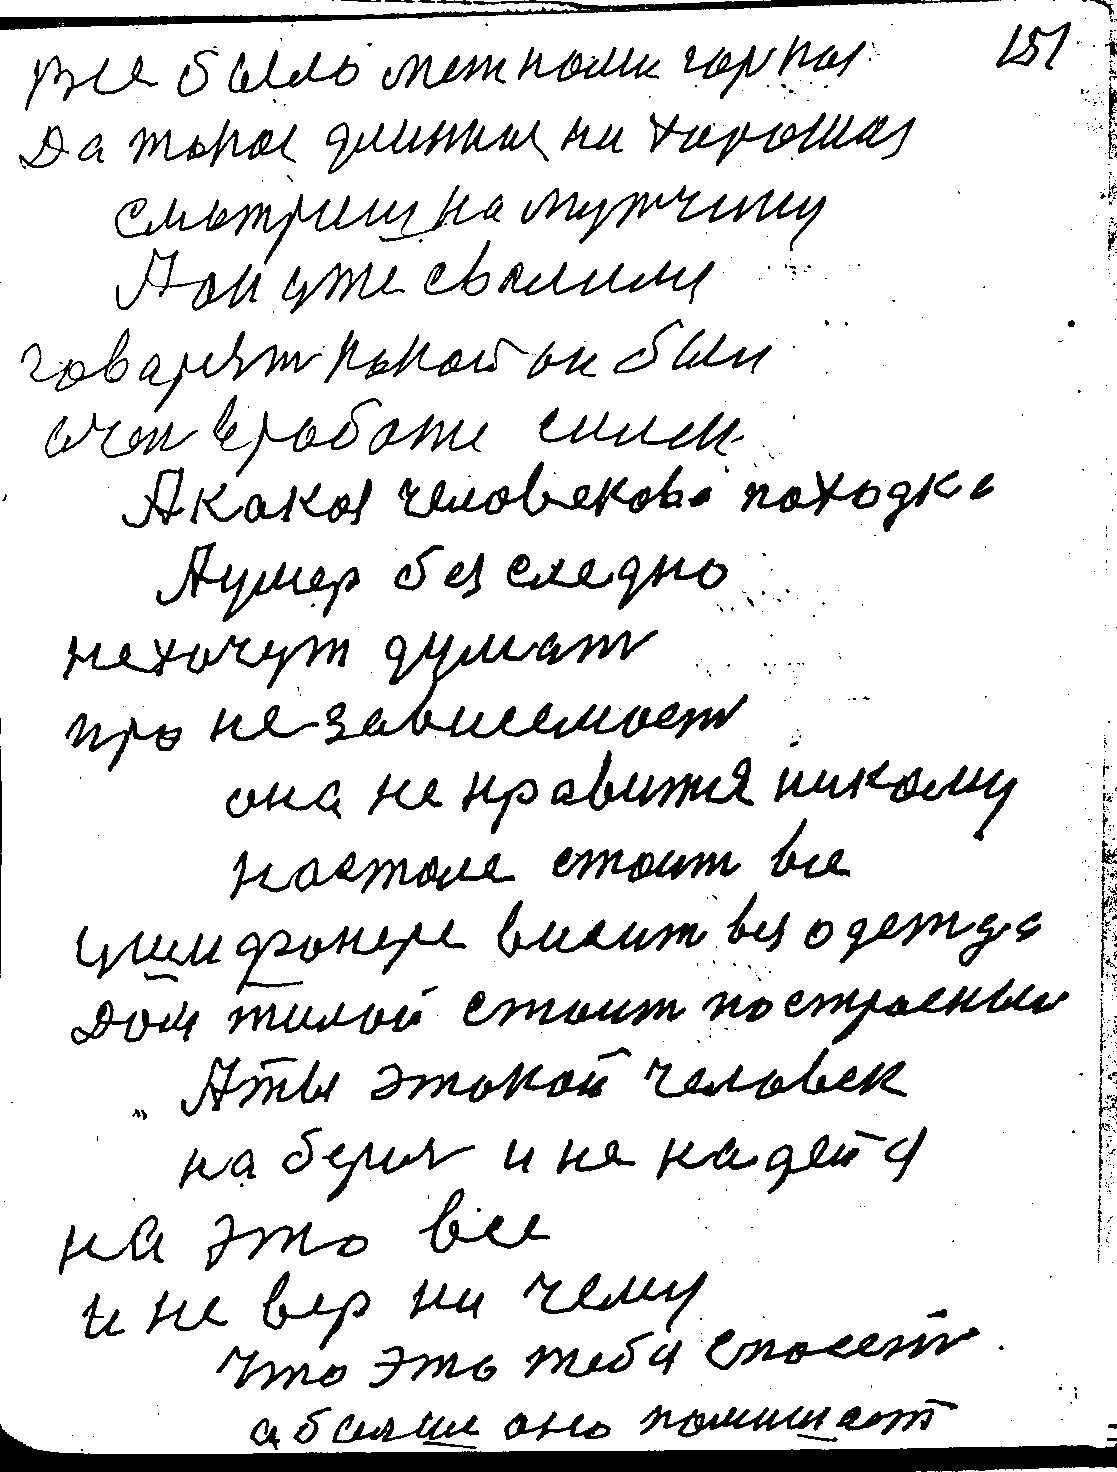 151
все было
Да такая длиная ни хорошая
смотриш на мужчину
А он уже свалилця
говарят какой он был
очен в работе силен
А какая человекова походка
А умер без следно
не хочут думат
про не зависемост
она не нравитя никому
на столе стоит все
у шифонере висит вся одежда
Дом жилой стоит построеный
А ты этакой человек
на берись и не надейся
на это все
и не вер ни чему
что это тебя спосет
а болше оно помишает